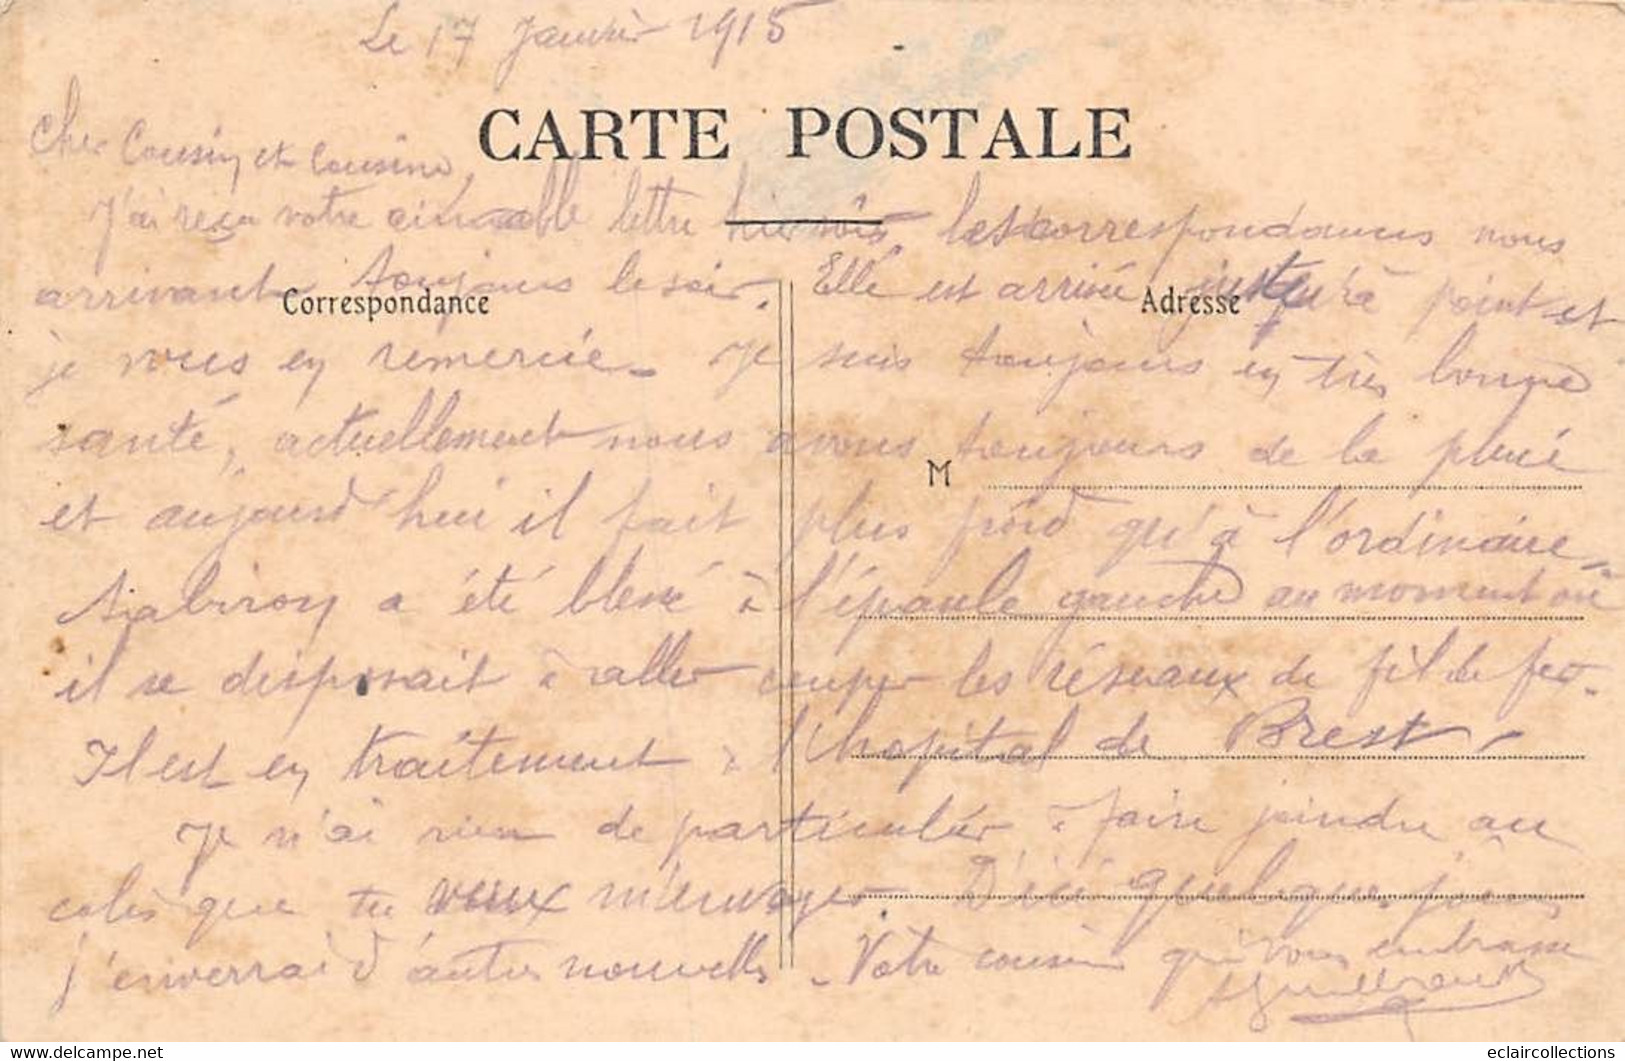 Le 17 Janvier 1915
CARTE POSTALE
Cher Cousin et Cousine,
J'ai reçu votre aimable lettre hier soir, les correspondances nous
arrivant toujours le soir. Elle est arrivée juste à point et
Correspondance
Adresse
je vous en remercie. Je suis toujours en très bonne
santé, actuellement nous avons toujours de la pluie
M
et aujourd'hui il fait plus froid qu'à l'ordinaire.
a été blessé à l'épaule gauche au moment où
il se disposait à aller couper les réseaux de fil de fer.
Il est en traitement à l'hopital de Brest.
Je n'ai rien de particulier à faire joindre au
colis que tu veux m'envoyer. D'ici quelque jours
j'enverrai d'autres nouvelles. Votre cousin qui vous embrasse
eclaircollections